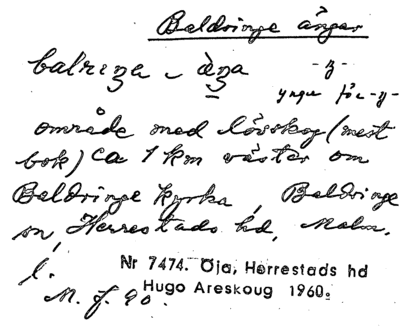 Baldringe ängar
balriŋa - äŋa -ŋ-
yngre för -ŋ-
område med lövskog (mest
bok) ca 1 km väster om
Baldringe kyrka, Baldringe
sn, Herrestads hd, Malm.
l.
Nr 7474. Öja, Herrestads hd
M. f. 90. Hugo Areskoug 1960.